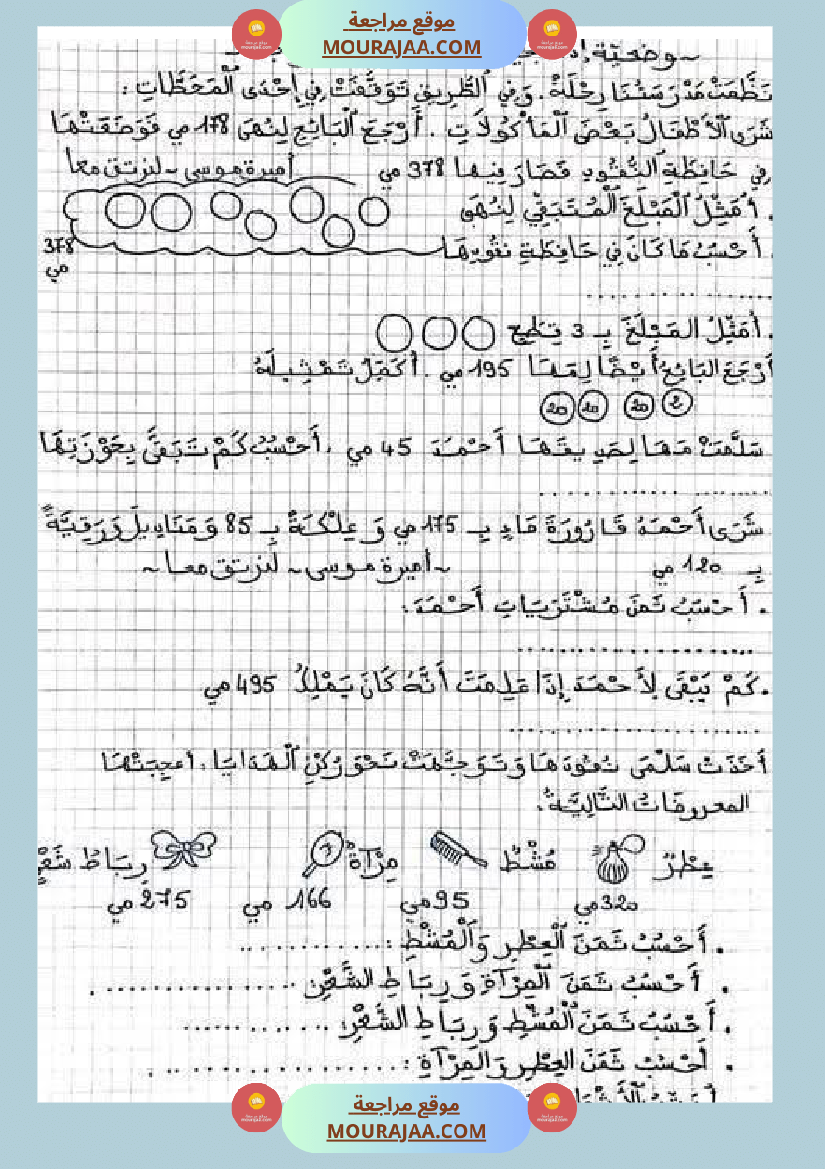 موقع مراجعة
MOURAJAA.COM
~وضعية
نَظَّمَتْ مَدْرَسَتُنَا رِحْلَةً. وَفِي ٱلطَّرِيقِ تَوَقَّفَتْ فِي إِحْدَى ٱلْمَحَطَّاتِ :
شَرَى ٱلْأَطْفَالُ بَعْضَ ٱلْمَأْكُولَاتِ . أَرْجَعَ ٱلْبَائِعُ لِنُهَى 178 مي فَوَضَعَتْهَا
فِي حَافِظَةِ ٱلنُّقُودِ فَصَارَ فِيهَا 378 مي
أميرة موسى ~ لنرتق معا
. أُمَثِّلُ ٱلْمَبْلَغَ ٱلْمُتَبَقِّي لِنُهَى
. أَحْسُبُ مَا كَانَ فِي حَافِظَةِ نُقُودِهَا
378
مي
..............
. أُمَثِّلُ المَبْلَغَ بِـ 3 قطع
أَرْجَعَ البَائِعُ أَيْضًا لِمَهَا 195 مي . أُكْمِلُ تَمْثِيلَهُ
20 20
سَلَّمَتْ مَهَا لِصَدِيقَهَا أَحْمَدَ 45 مي . أَحْسُبُ كَمْ تَبَقَّى بِحَوْزَتِهَا
..............
شَرَى أَحْمَدُ قَارُورَةَ مَاءٍ بِـ 175 مي وَ عِلْكَةً بِـ 85 وَمَنَادِيلَ وَرَقِيَّةً
بِـ 120 مي
~أميرة موسى ~ لنرتق معا ~
. أَحْسُبُ ثَمَنَ مُشْتَرَيَاتِ أَحْمَدَ:
..............
. كَمْ يَبْقَى لِأَحْمَدَ إِذَا عَلِمْتَ أَنَّهُ كَانَ يَمْلِكُ 495 مي
..............
أَخَذَتْ سَلْمَى نُقُودَهَا وَتَوَجَّهَتْ نَحْوَ رُكْنِ ٱلْهَدَايَا. أعجبَتْهَا
المعروضَاتُ التَّالِيَّةُ:
عِطْرٌ مُشْطٌ مِرْآةٌ رِبَاطُ شَعْرٍ
320مي 95مي 166 مي 275 مي
. أَحْسُبُ ثَمَنَ ٱلْعِطْرِ وَٱلْمُشْطِ :..............
. أَحْسُبُ ثَمَنَ ٱلْمِرْآةِ وَرِبَاطِ الشَّعْرِ ..............
. أَحْسُبُ ثَمَنَ ٱلْمُشْطِ وَرِبَاطِ الشَّعْرِ: ..............
. أَحْسُبُ ثَمَنَ العِطْرِ وَالمِرْآةِ : ..............
موقع مراجعة
MOURAJAA.COM